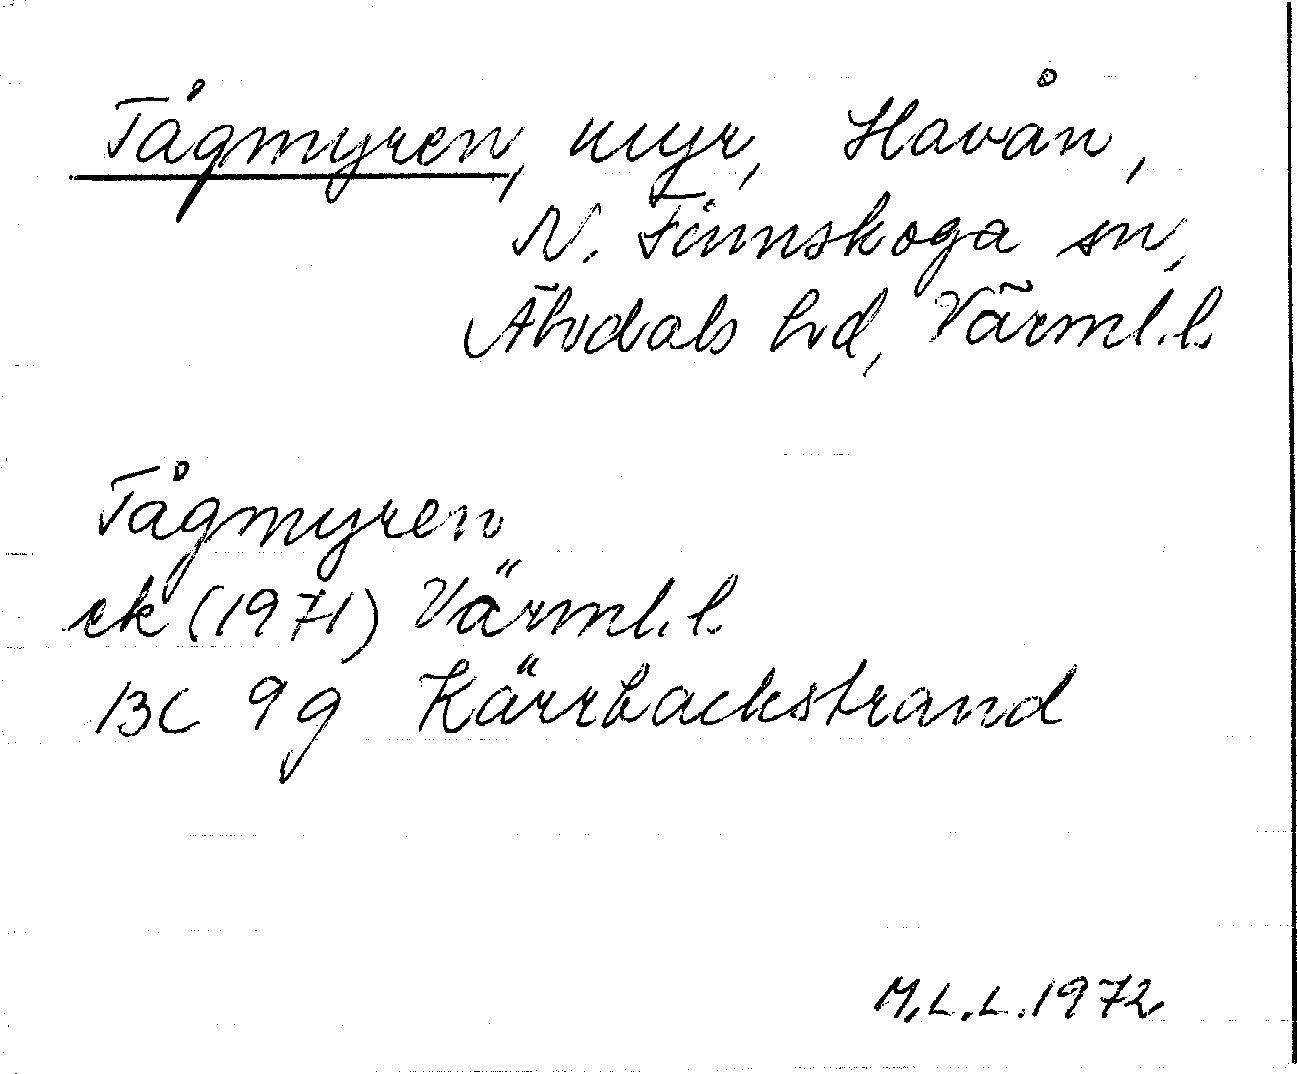 Tågmyren, myr, Havån,
N. Finnskoga sn,
Älvdals hd, Värml. l.
Tågmyren
ek (1971) Värml. l.
13C 9g Kärrbackstrand
M.L.L. 1972